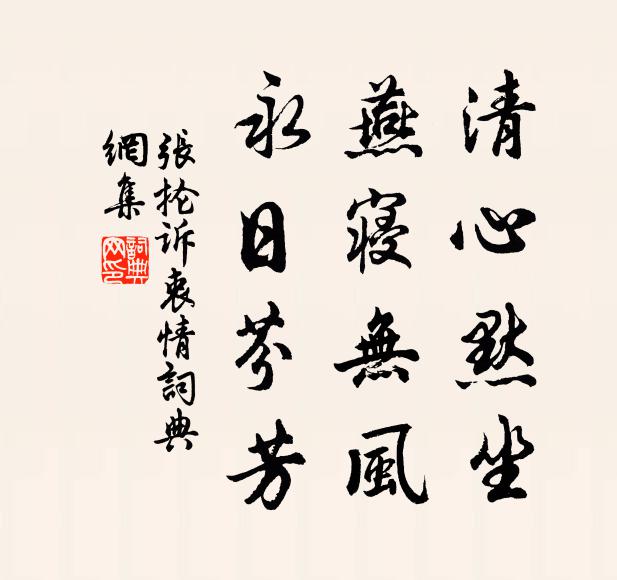 清心默坐
燕寝無風
永日芬芳
張抡訴衷情詞典
網集
詞典
网印